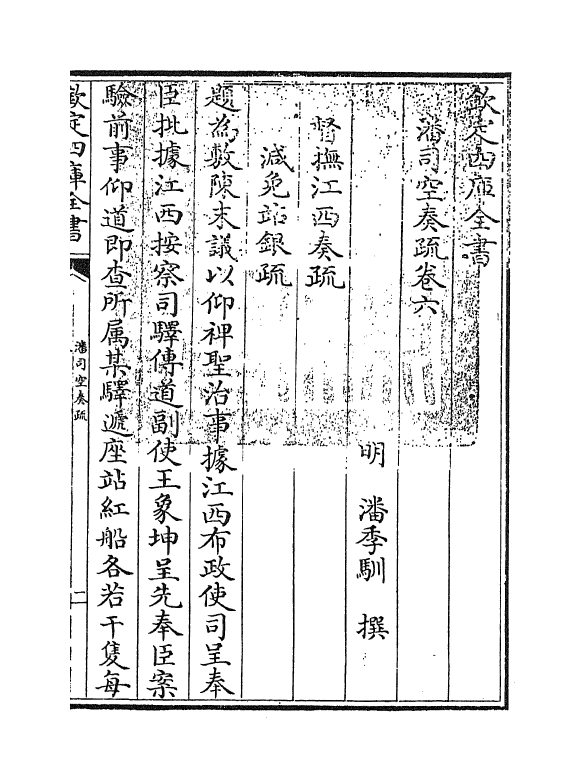 欽定四庫全書
潘司空奏疏卷六
明 潘季馴 撰
督撫江西奏疏
減免站銀疏
題為敷陳末議以仰裨聖治事據江西布政使司呈奉
臣批據江西按察司驛傳道副使王象坤呈先奉臣案
驗前事仰道即查所属某驛遞座站紅船各若干隻每
欽定四庫全書
潘司空奏疏